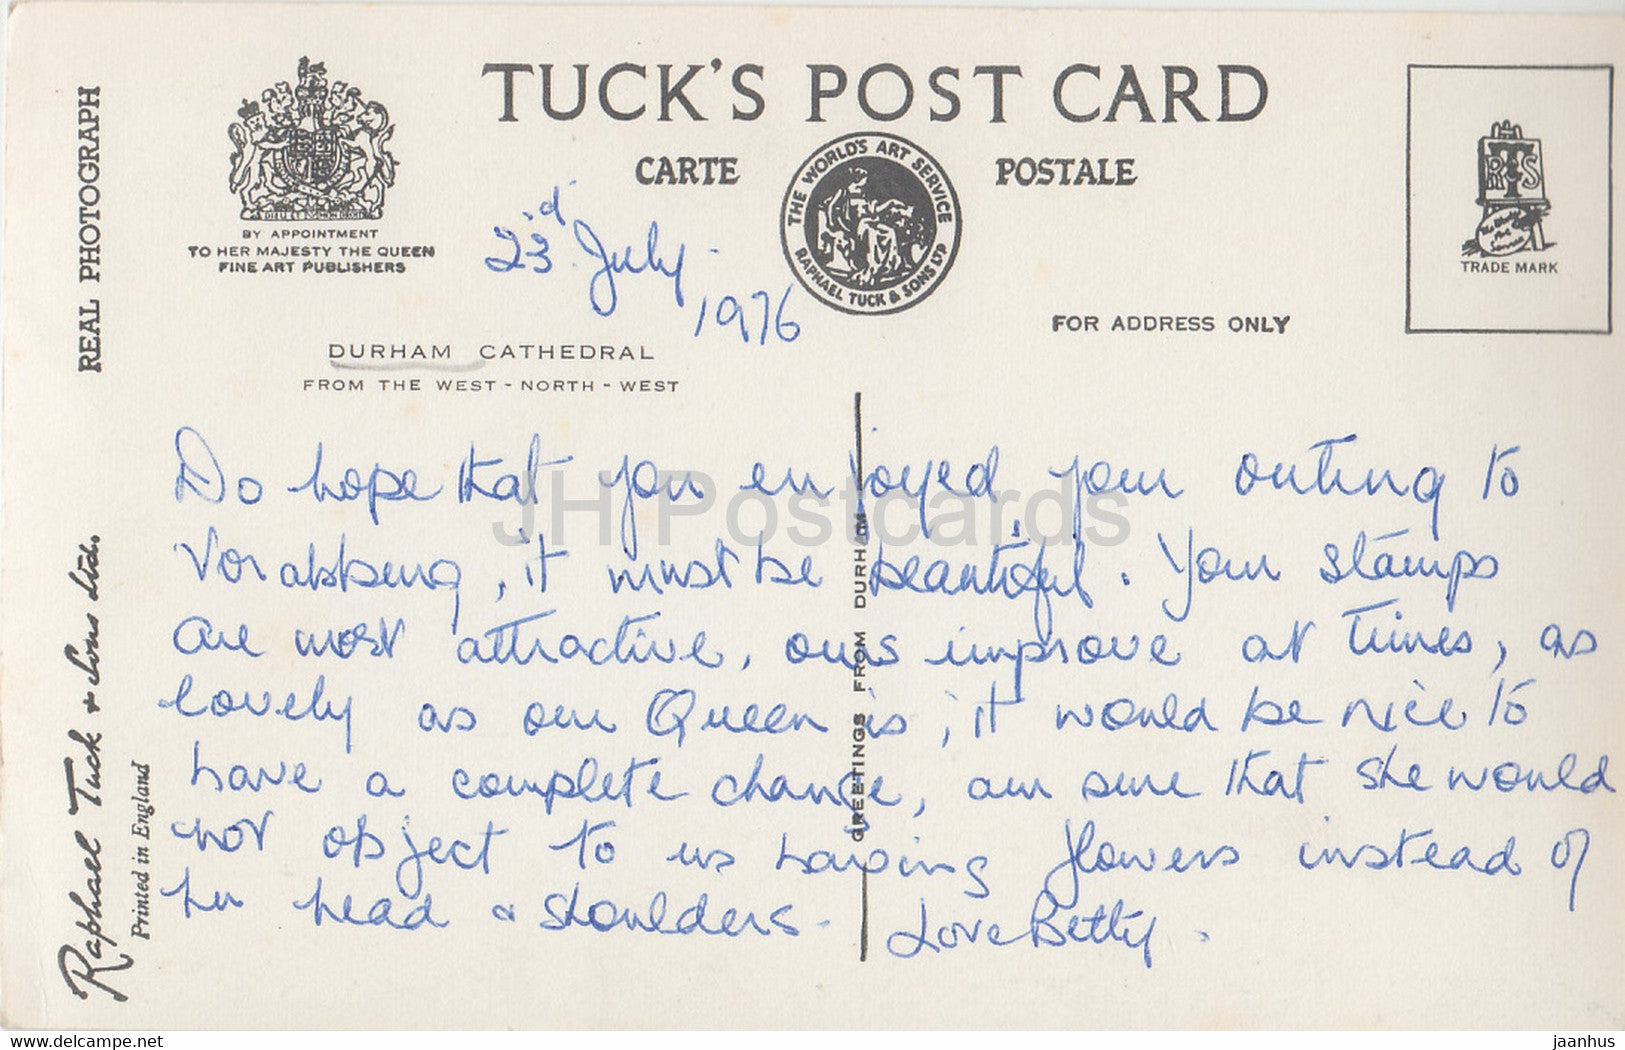 TUCK'S POST CARD
CARTE POSTALE
REAL PHOTOGRAPH
DIEU ET MON DROIT
BY APPOINTMENT
TO HER MAJESTY THE QUEEN
FINE ART PUBLISHERS
THE WORLD'S ART SERVICE
RAPHAEL TUCK & SONS LTD
TRADE MARK
FOR ADDRESS ONLY
23rd July
1976
DURHAM CATHEDRAL
FROM THE WEST-NORTH-WEST
Do hope that you enjoyed your outing to
Vorabbeng, it must be beautiful. Your stamps
are most attractive, ours improve at times, as
lovely as our Queen is, it would be nice to
have a complete change, am sure that she would
not object to us having flowers instead of
her head & shoulders.
Love Betty.
GREETINGS FROM DURHAM
Raphael Tuck & Sons Ltd.
Printed in England
JH Postcards
www.delcampe.net
jaanhus